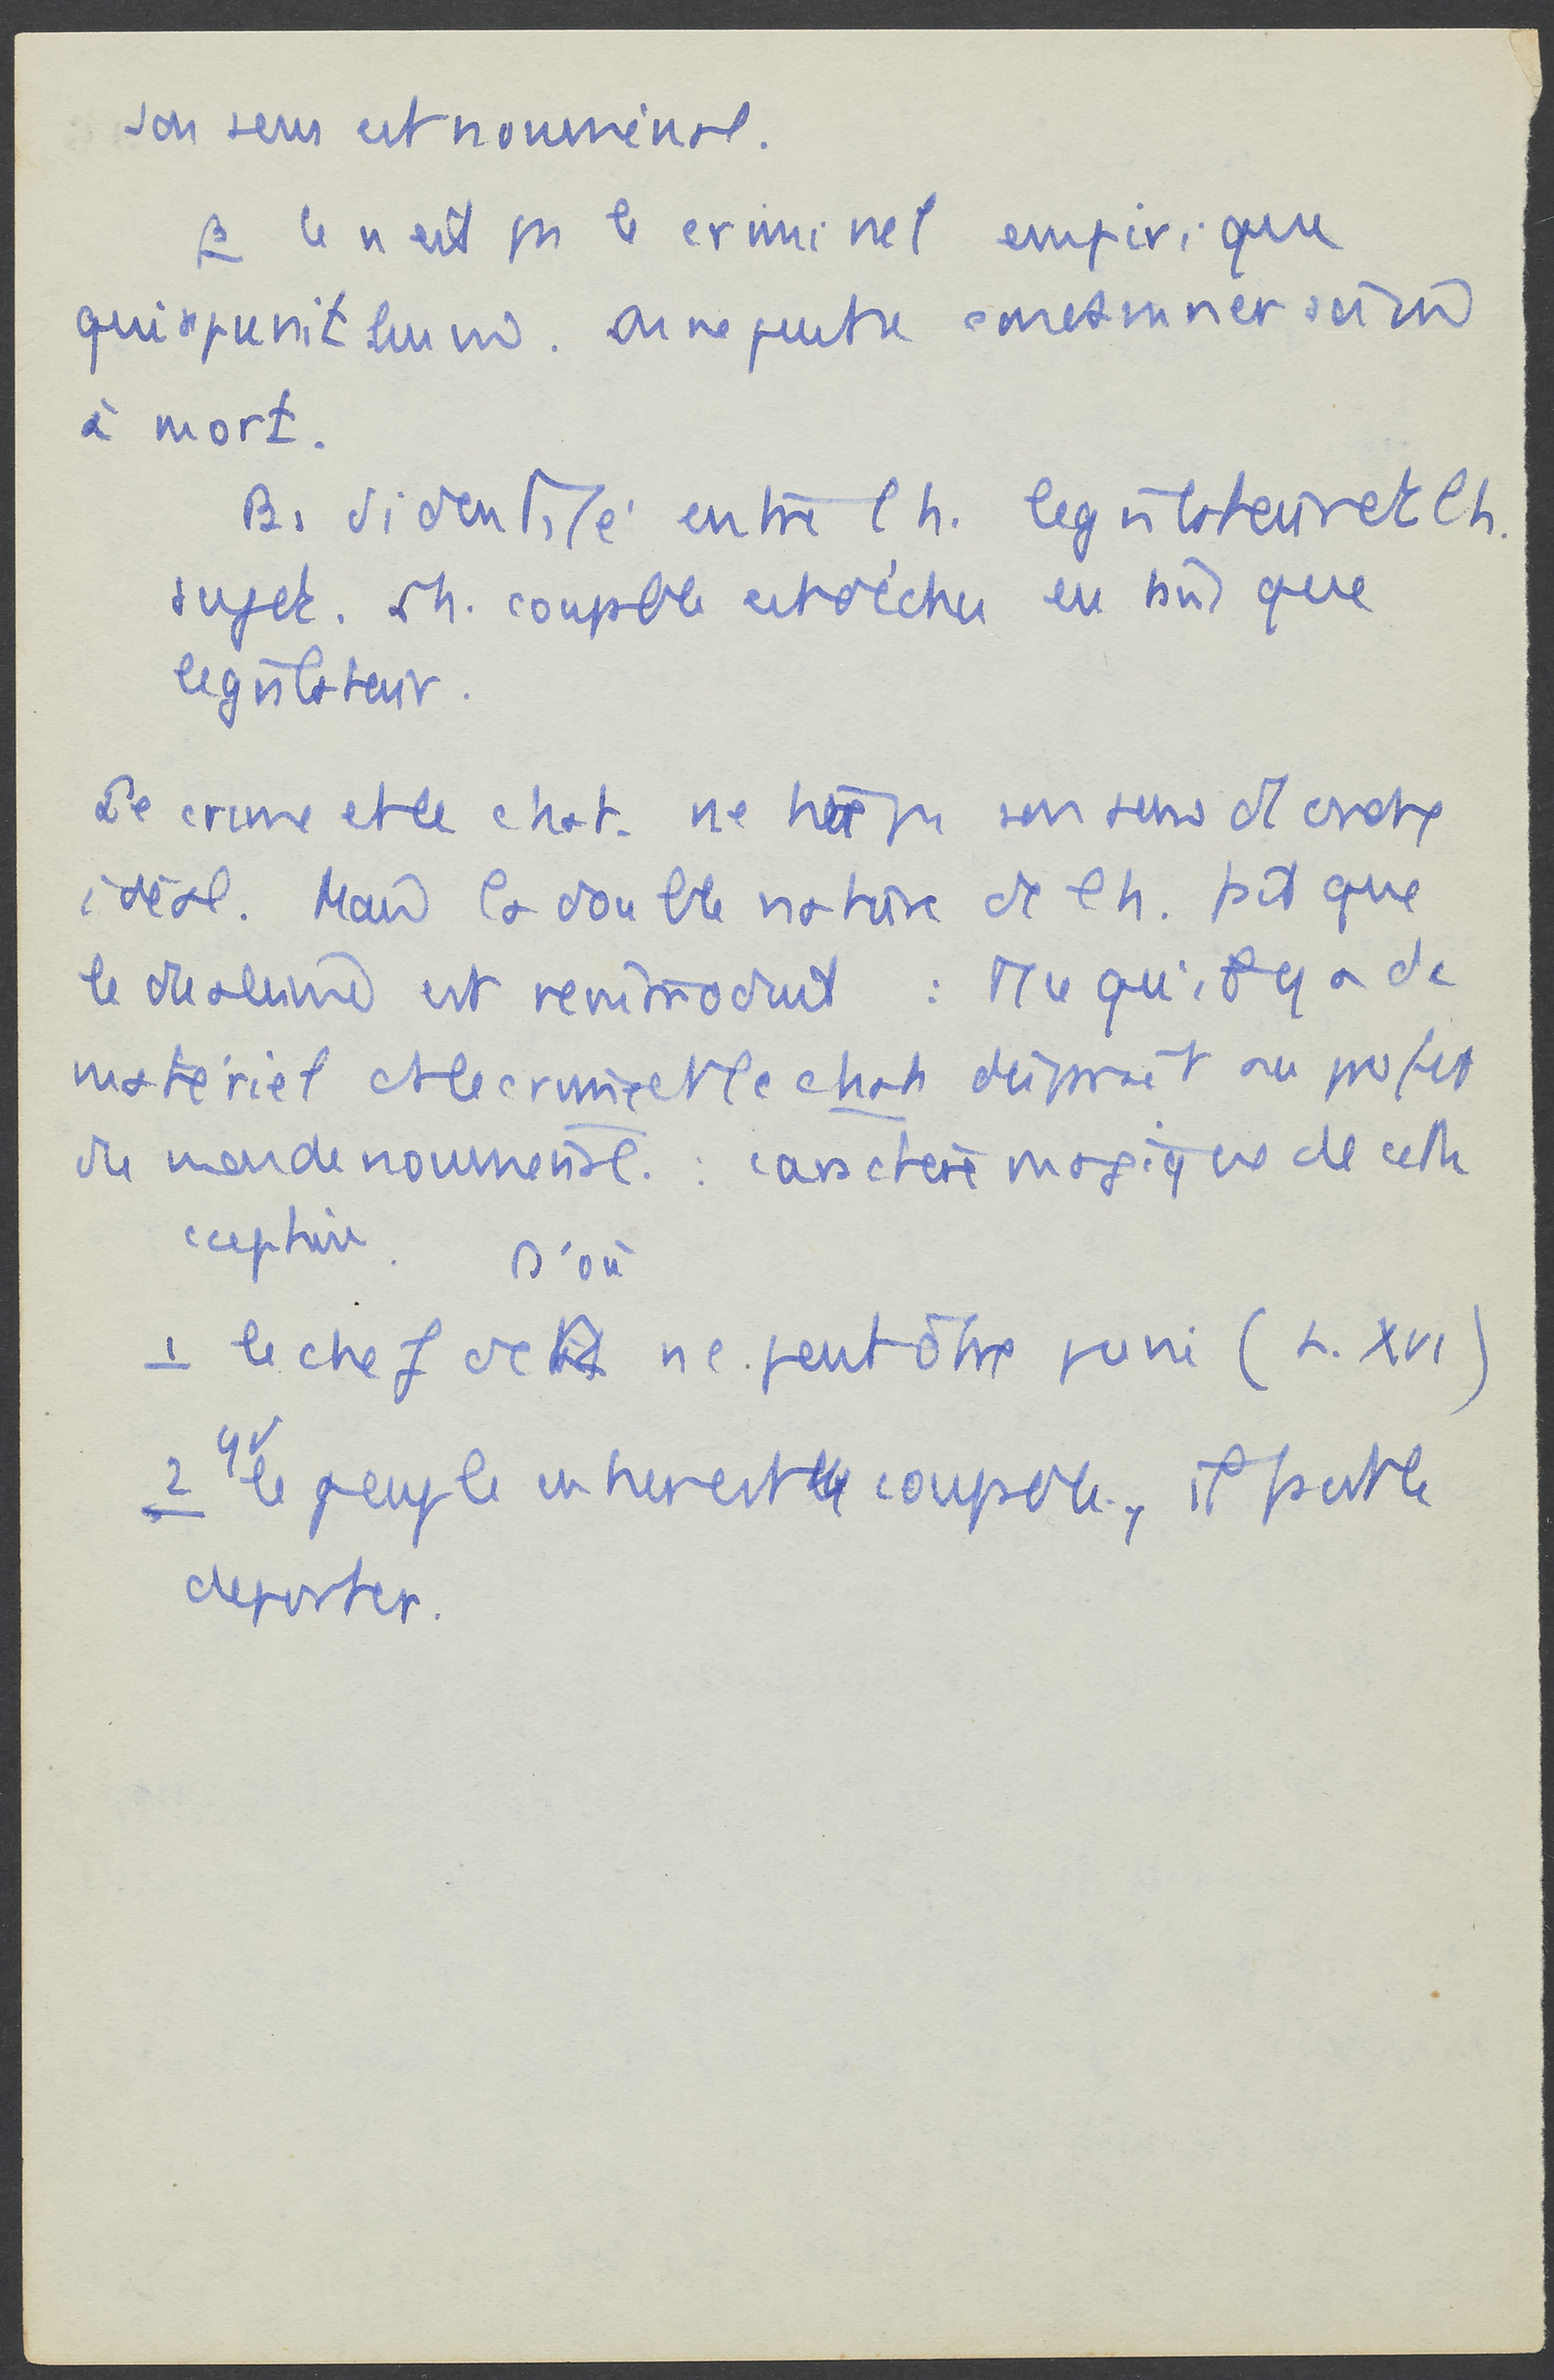 son sens est nouménal.
β Ce n'est pas le criminel empirique
qui se punit lui-même. On ne peut se condamner soi-même
à mort.
B. d'identité entre l'h. législateur et l'h.
sujet. L'h. coupable est déchu en tant que
législateur.
Le crime et le chat. ne sens de ordre
idéal. Mais la double nature de l'h. fait que
le dualisme est réintroduit : tt ce qu'il y a de
matériel ds le crime et le chat disparaît au profit
du monde nouménal. : caractère magique de cette
D'où
1 le chef de ne peut être puni (L. XVI)
2 qd le peuple entier est coupable, il faut le
déporter.